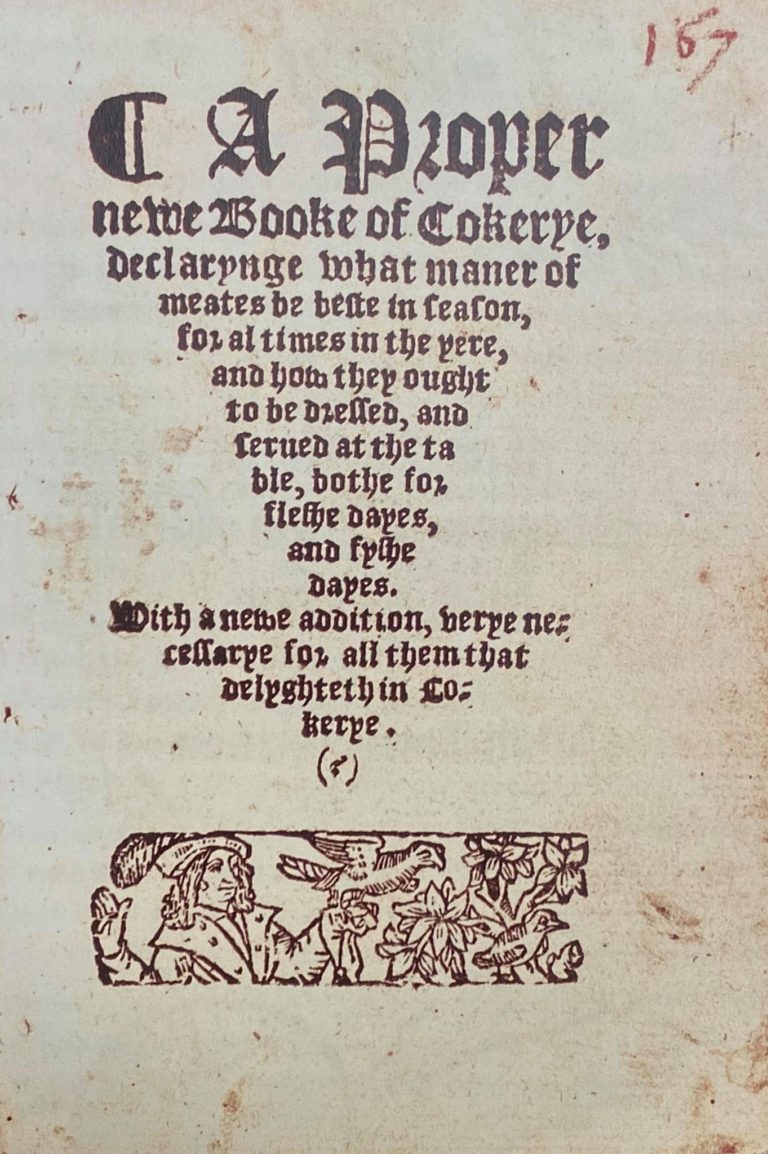 157
¶ A Proper
newe Booke of Cokerye,
declarynge what maner of
meates be beste in ſeaſon,
for al times in the yere,
and how they ought
to be dreſſed, and
ſerued at the ta
ble, bothe for
fleſhe dayes,
and fyſhe
dayes.
With a newe addition, verye ne⸗
ceſſarye for all them that
delyghteth in Co⸗
kerye.